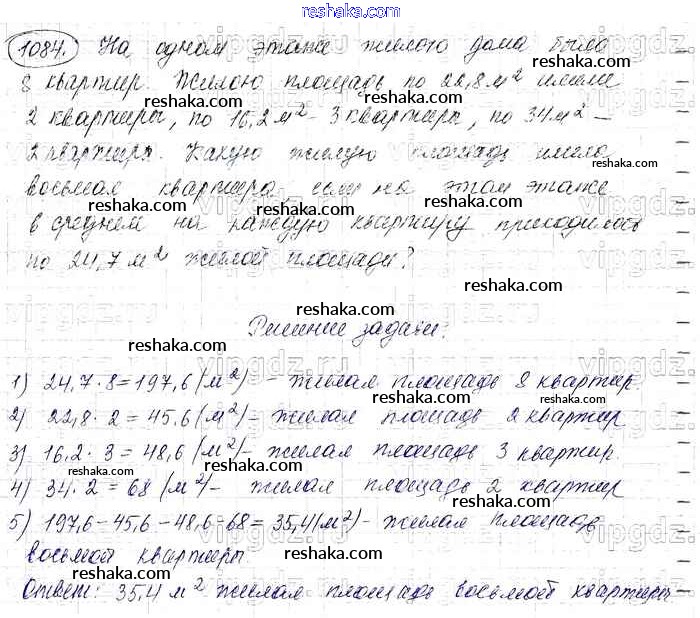 reshaka.com
1084. На одном этаже жилого дома было
8 квартир. Жилою площадь по 22,8 м² имели
reshaka.com
2 квартиры, по 16,2 м² - 3 квартиры, по 34 м² -
reshaka.com
2 квартиры. Какую жилую площадь имела
reshaka.com
восьмая квартира, если на этом этаже
reshaka.com
в среднем на каждую квартиру приходилось
reshaka.com
по 24,7 м² жилой площади?
reshaka.com
reshaka.com
Решение задачи:
reshaka.com
1) 24,7 · 8 = 197,6 (м²) - жилая площадь 8 квартир.
reshaka.com
2) 22,8 · 2 = 45,6 (м²) - жилая площадь 2 квартир
reshaka.com
3) 16,2 · 3 = 48,6 (м²) - жилая площадь 3 квартир.
reshaka.com
4) 34 · 2 = 68 (м²) - жилая площадь 2 квартир
reshaka.com
5) 197,6 - 45,6 - 48,6 - 68 = 35,4 (м²) - жилая площадь
reshaka.com
восьмой квартиры
reshaka.com
Ответ: 35,4 м² жилая площадь восьмой квартиры
reshaka.com